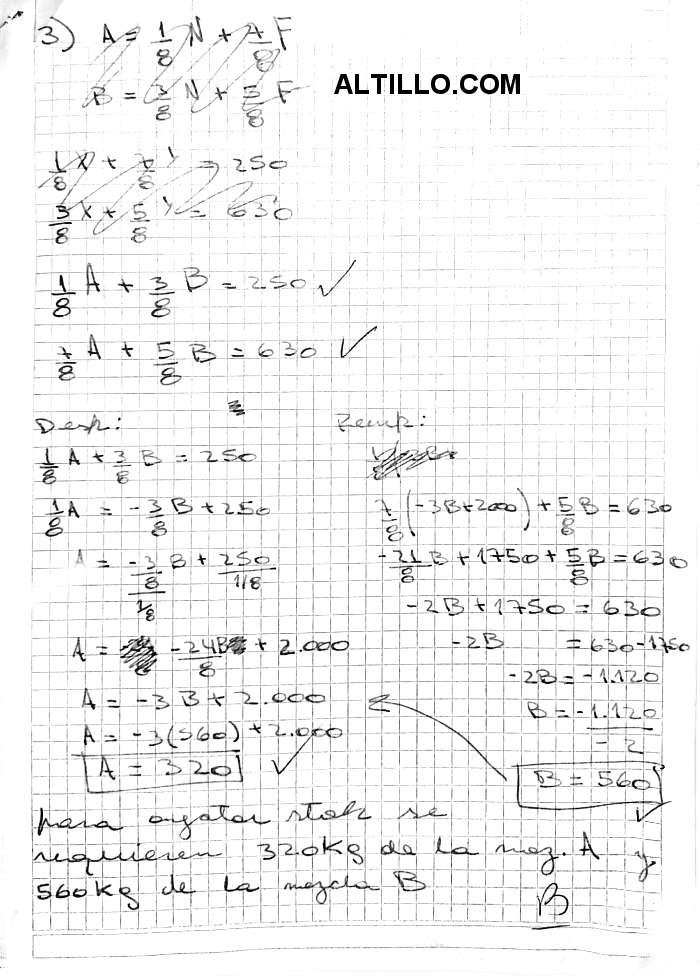 3) A = 1/8 N + 7/8 F
ALTILLO.COM
B = 3/8 N + 5/8 F
1/8 X + 7/8 Y = 250
3/8 X + 5/8 Y = 630
1/8 A + 3/8 B = 250 ✓
7/8 A + 5/8 B = 630 ✓
Desp:
1/8 A + 3/8 B = 250
1/8 A = -3/8 B + 250
A = -3/8 / 1/8 B + 250 / 1/8
A = -24B/8 + 2.000
A = -3B + 2.000
A = -3(560) + 2.000
A = 320 ✓
Remp:
7/8 (-3B+2000) + 5/8 B = 630
-21/8 B + 1750 + 5/8 B = 630
-2B + 1750 = 630
-2B = 630-1750
-2B = -1.120
B = -1.120 / -2
B = 560 ✓
para agotar stok se
requieren 320kg de la mez. A y
560kg de la mezcla B
B